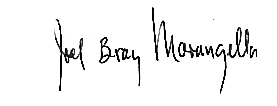 Joel Bray Marangella